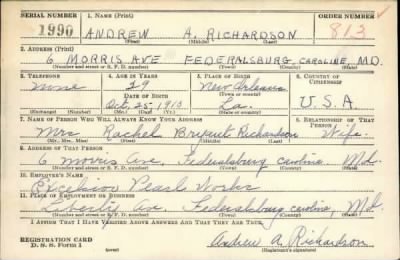 SERIAL NUMBER 1. NAME (Print) ORDER NUMBER
1990 ANDREW A. RICHARDSON 813
(First) (Middle) (Last)
2. ADDRESS (Print)
6 MORRIS AVE FEDERALSBURG, CAROLINE, MD.
(Number and street or R. F. D. number) (Town) (County) (State)
3. TELEPHONE 4. AGE IN YEARS 5. PLACE OF BIRTH 6. COUNTRY OF CITIZENSHIP
none 29 New Orleans
DATE OF BIRTH (Town or county)
Oct. 25 1910 La. U.S.A.
(Exchange) (Number) (Mo.) (Day) (Yr.) (State or country)
7. NAME OF PERSON WHO WILL ALWAYS KNOW YOUR ADDRESS 8. RELATIONSHIP OF THAT PERSON
Mrs Rachel Richardson Wife.
(Mr., Mrs., Miss) (First) (Middle) (Last)
9. ADDRESS OF THAT PERSON
6 Morris Ave, Federalsburg Caroline, Md.
(Number and street or R. F. D. number) (Town) (County) (State)
10. EMPLOYER'S NAME
Excelsior Pearl Works
11. PLACE OF EMPLOYMENT OR BUSINESS
Liberty Ave. Federalsburg Caroline, Md.
(Number and street or R. F. D. number) (Town) (County) (State)
I AFFIRM THAT I HAVE VERIFIED ABOVE ANSWERS AND THAT THEY ARE TRUE.
REGISTRATION CARD
D. S. S. Form 1 (over) Andrew A. Richardson
(Registrant's signature)